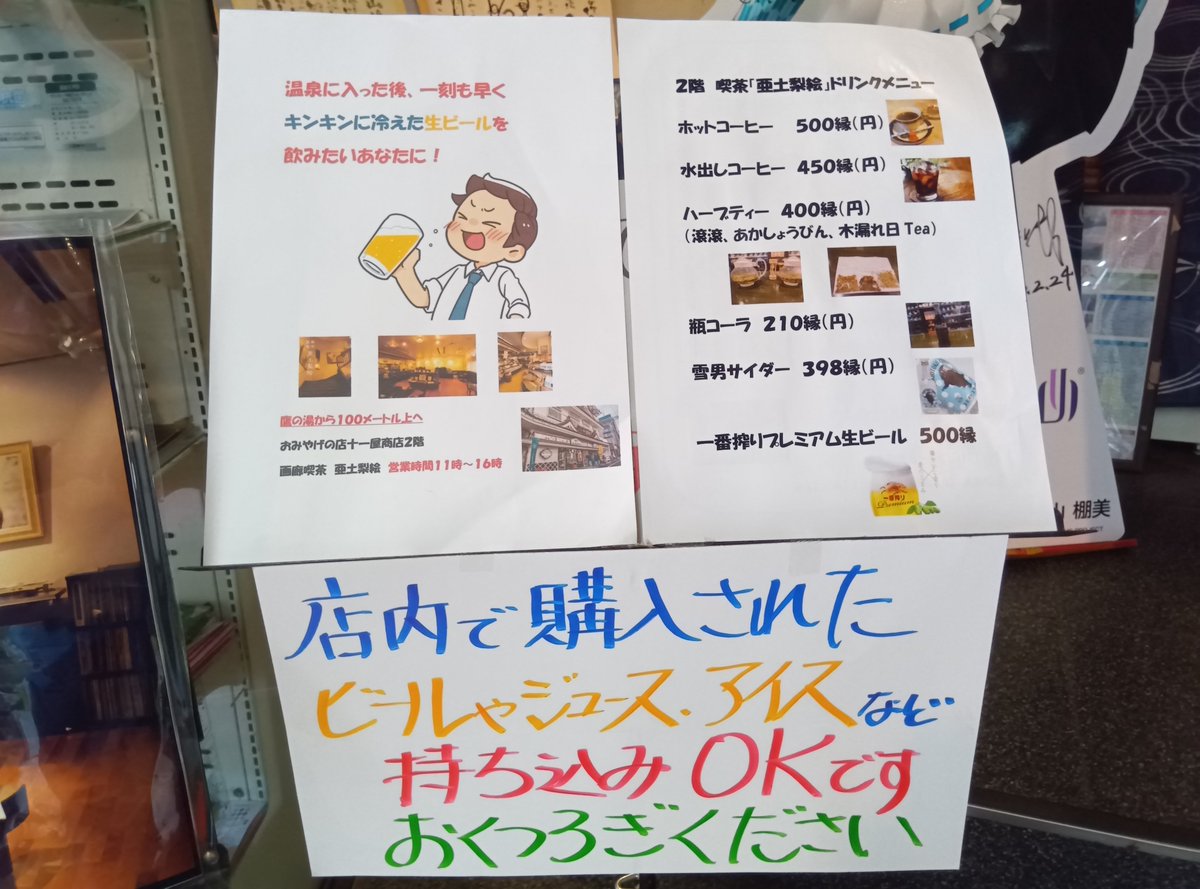 温泉に入った後、一刻も早く
キンキンに冷えた生ビールを
飲みたいあなたに！
鷹の湯から100メートル上へ
おみやげの店十一屋商店2階
画廊喫茶 亜土梨絵 営業時間11時～16時
2階 喫茶「亜土梨絵」ドリンクメニュー
ホットコーヒー 500縁（円）
水出しコーヒー 450縁（円）
ハーブティー 400縁（円）
（滾滾、あかしょうびん、木漏れ日Tea）
瓶コーラ 210縁（円）
雪男サイダー 398縁（円）
一番搾りプレミアム生ビール 500縁
一番搾り
Premium
.2.24
棚美
店内で購入された
ビールやジュース、アイスなど
持ち込みOKです
おくつろぎください